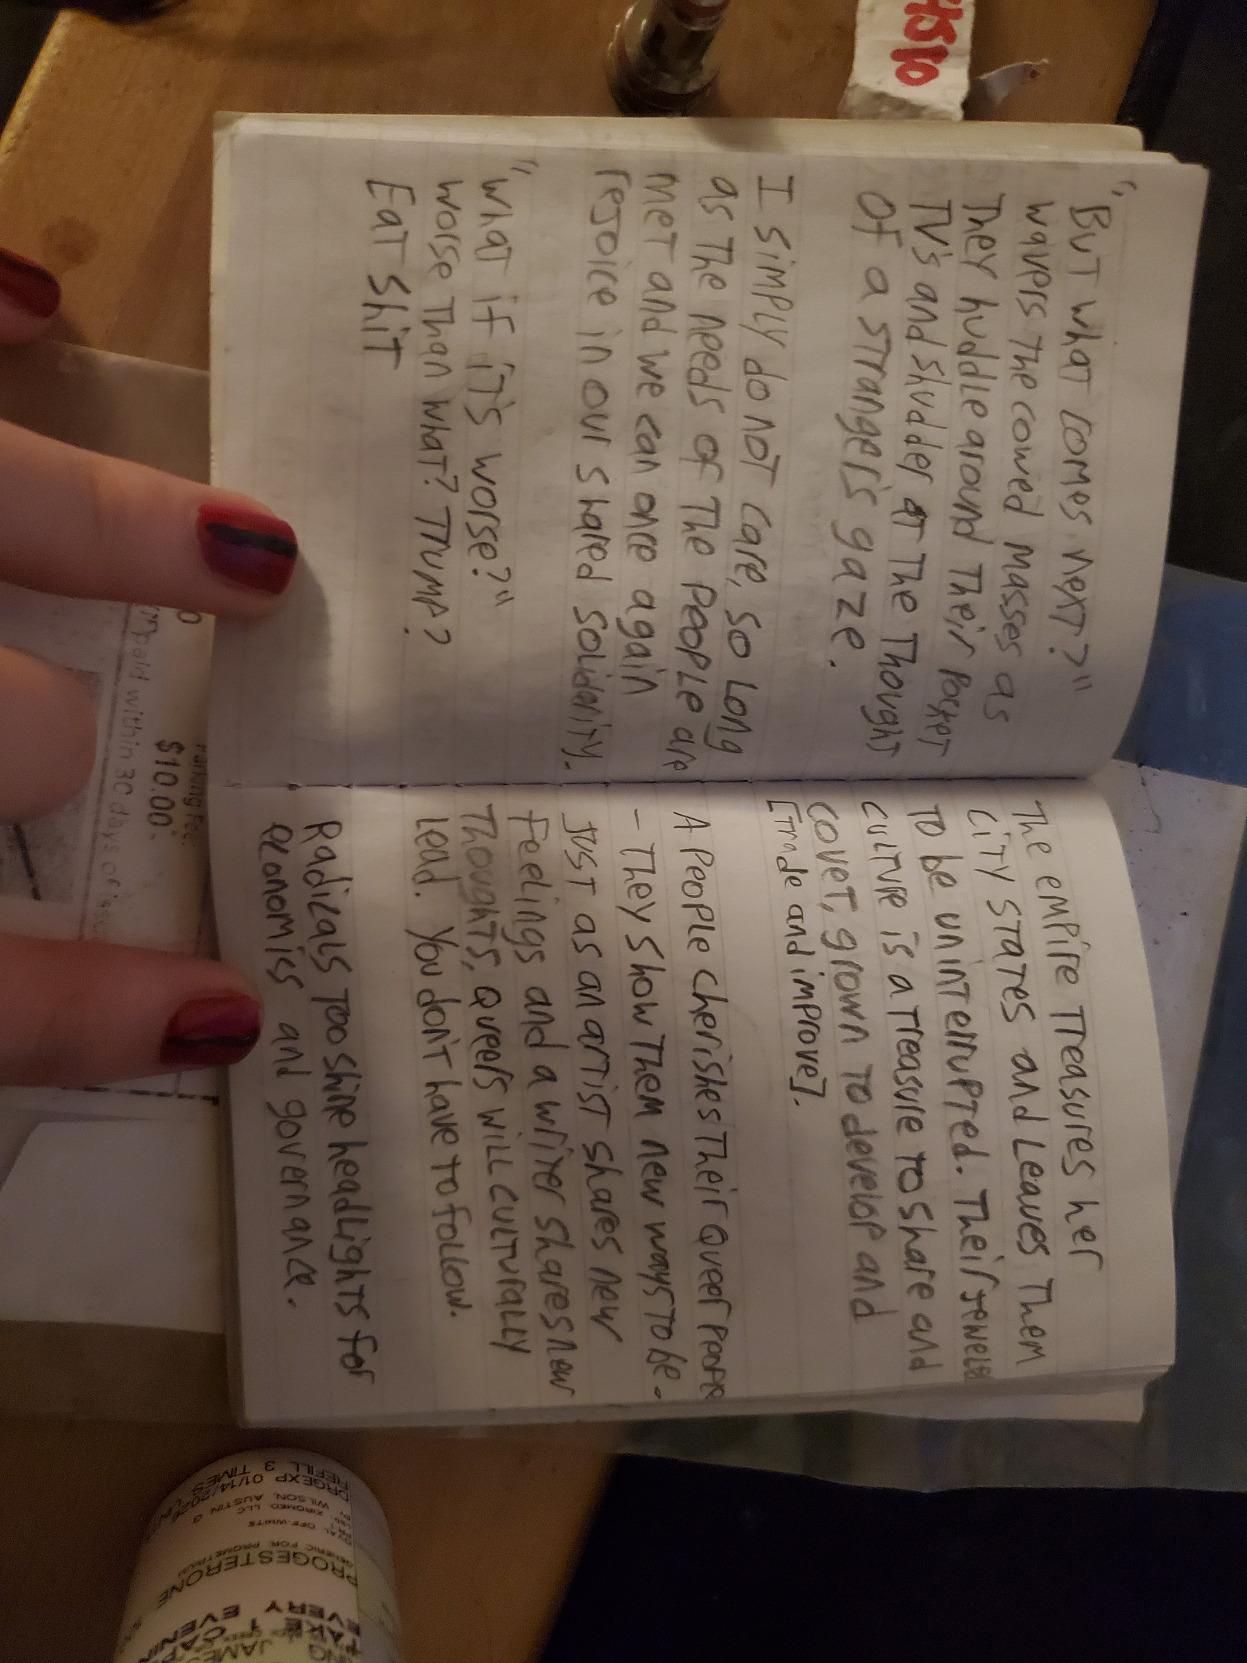 "But what comes next?"
wavers the cowed masses as
They huddle around their pocket
TV's and shudder at the thought
of a stranger's gaze.
I simply do not care, so long
as the needs of the people are
met and we can once again
rejoice in our shared solidarity.
"What if it's worse?"
worse than what? Trump?
Eat shit
The empire treasures her
city states and leaves them
to be uninterrupted. Their jeweled
culture is a treasure to share and
covet, grown to develop and
[trade and improve].
A people cherishes their queer people
- They show them new ways to be -
Just as an artist shares new
feelings and a writer shares new
thoughts, queers will culturally
lead. You don't have to follow.
Radicals too shine headlights for
economics and governance.
4510
paid within 30 days of
Parking Fee:
$10.00
REFILL 3 TIMES
ORGEXP 01/14/202
WILSON, AUSTIN G
XIROMED, LLC
OVAL OFF-WHITE
GENERIC FOR PROMETRIUM
PROGESTERONE
TAKE 1 CAP
EVERY EVENIN
JAMES